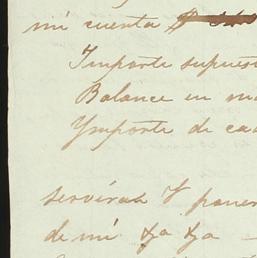 mi cuenta $
Importe supuest
Balance en m
Ymporte de ca
servirán V poner
de mi &a &a